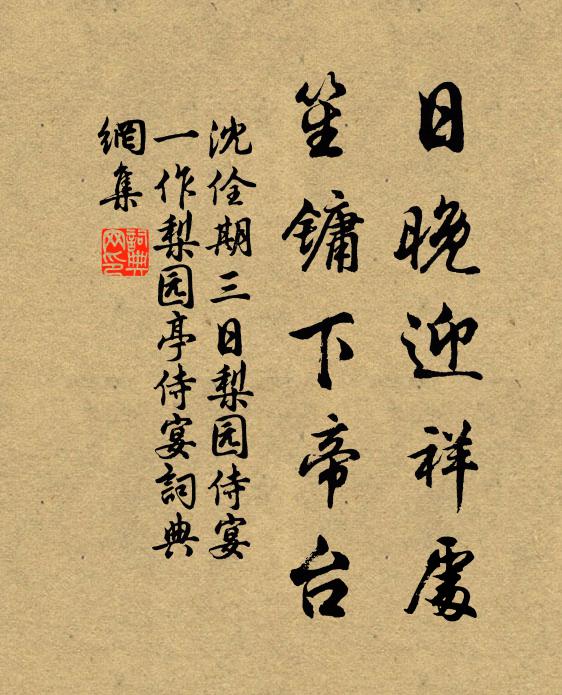 日晚迎祥處
笙鏞下帝台
沈佺期三日梨园侍宴
一作梨园亭侍宴詞典
網集
詞典
网印